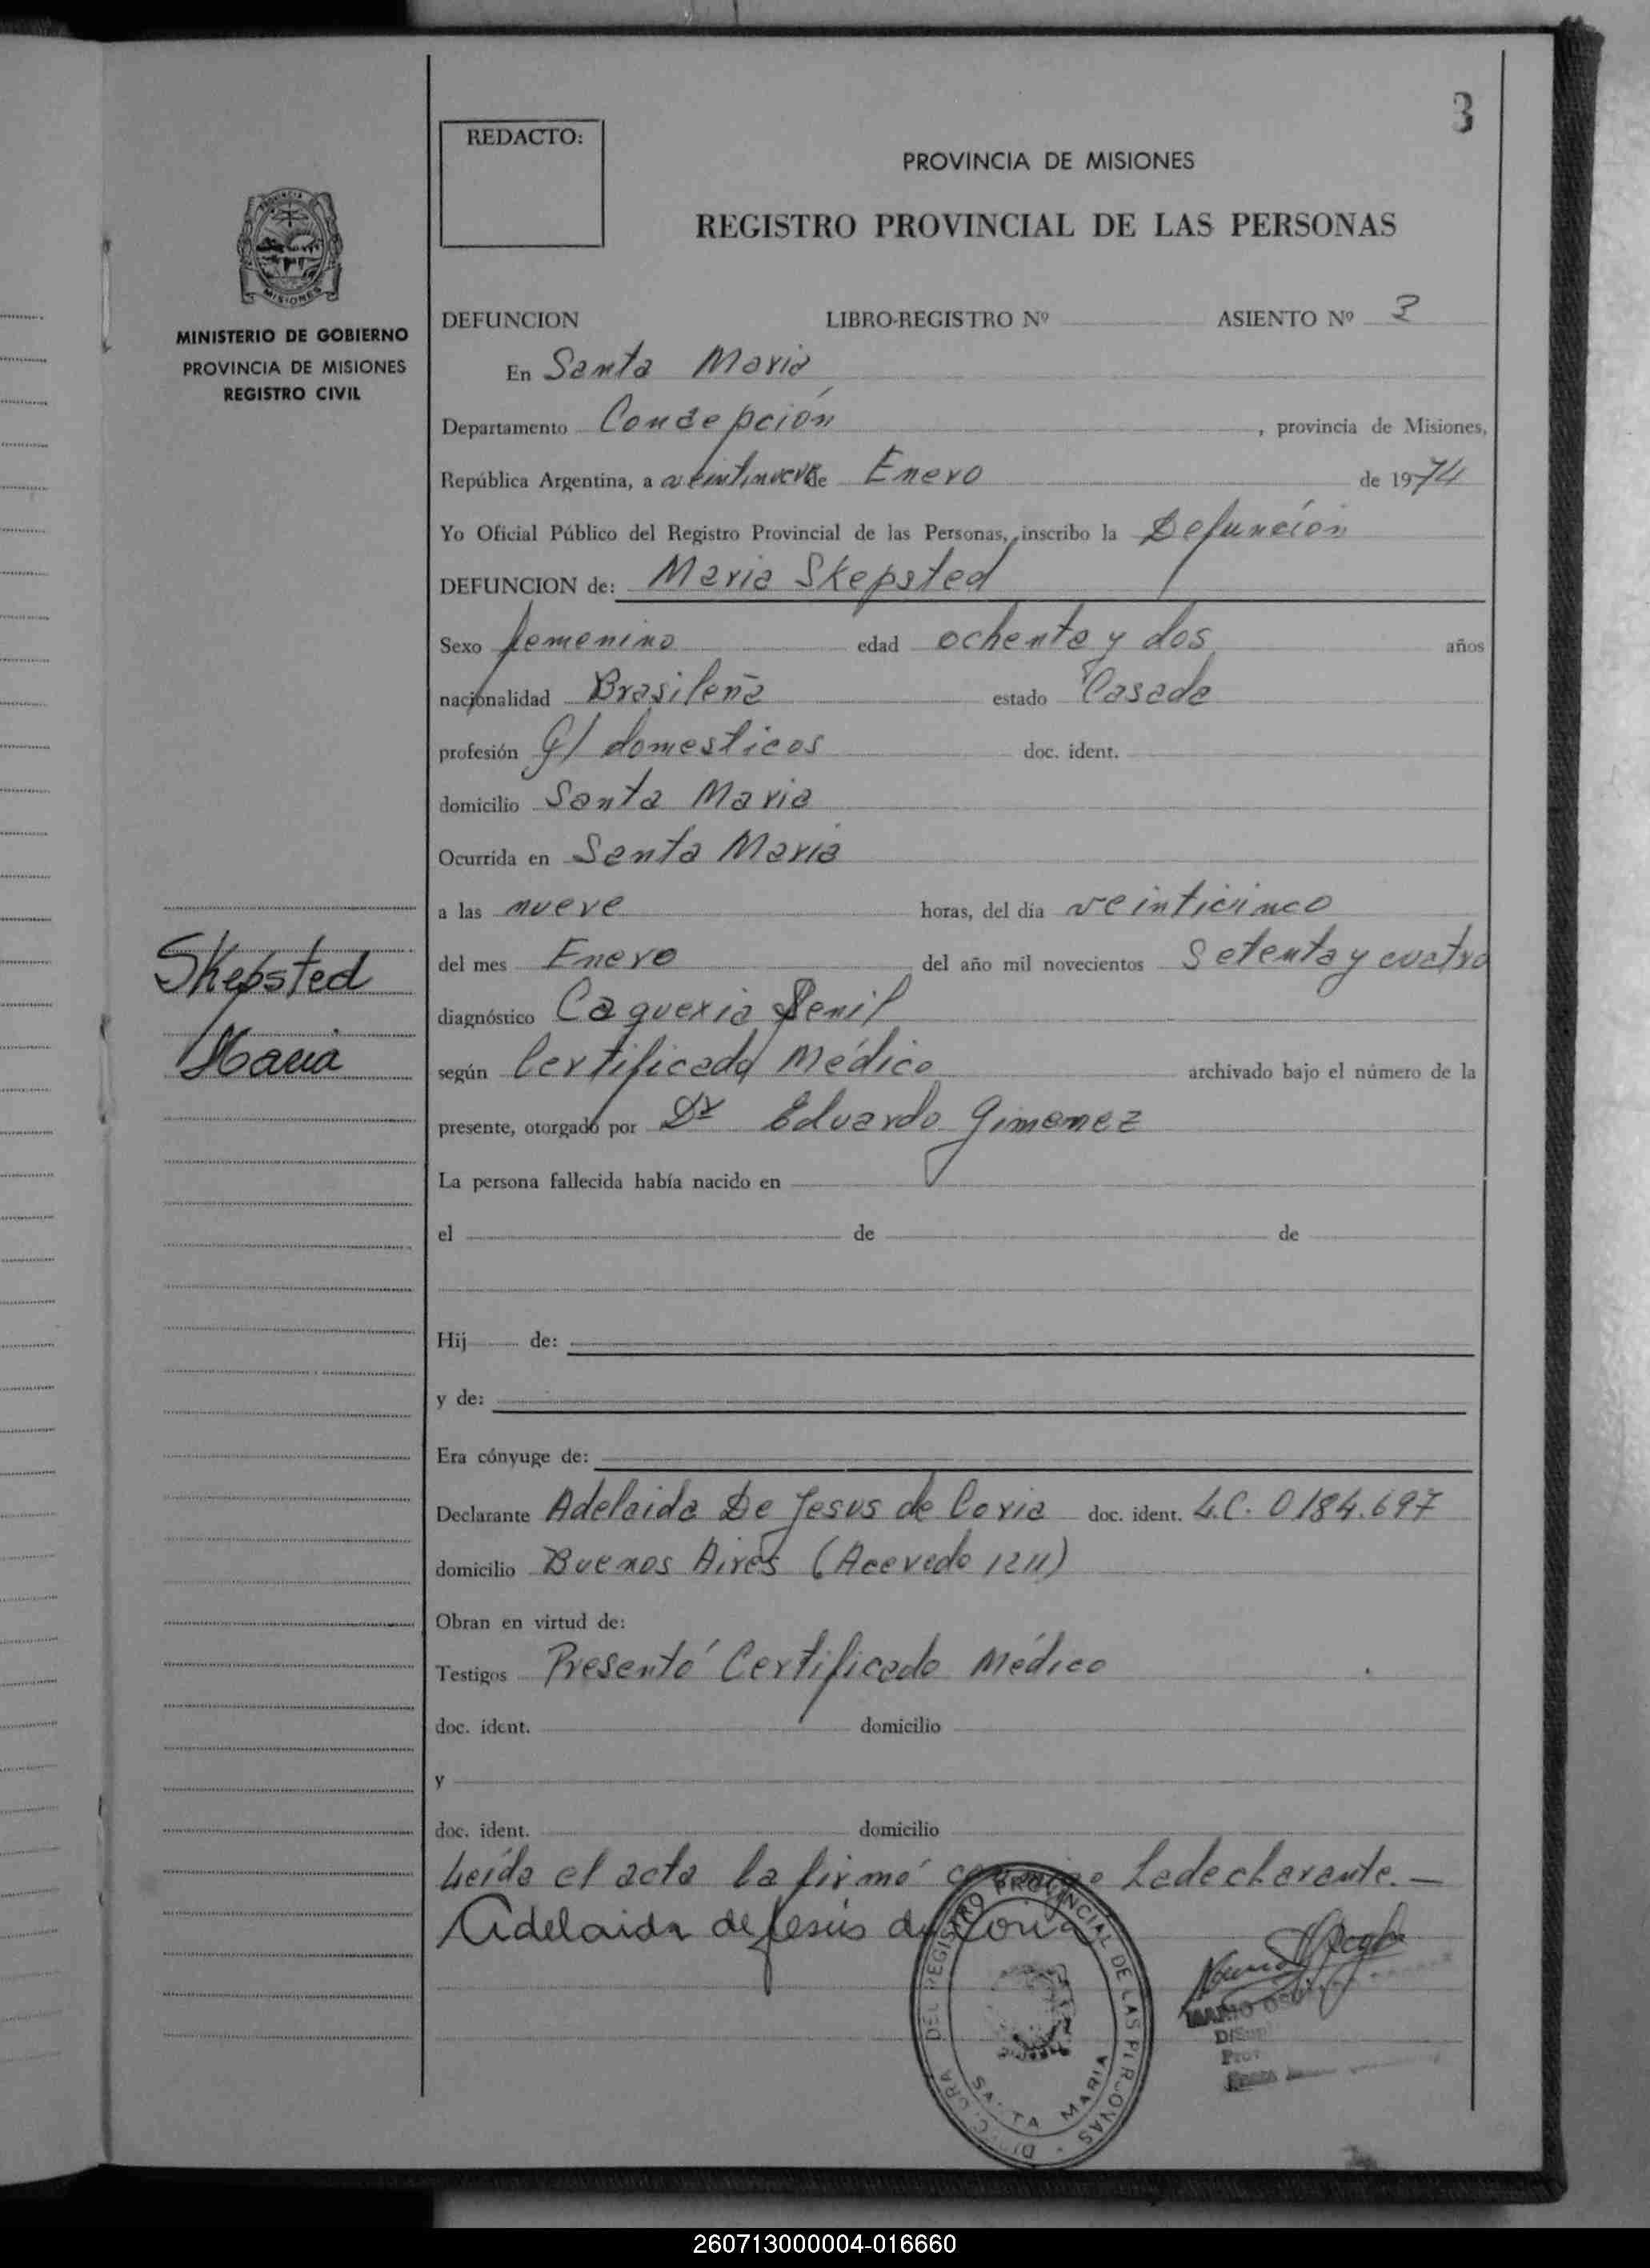 3
REDACTO:
PROVINCIA DE MISIONES
REGISTRO PROVINCIAL DE LAS PERSONAS
PROVINCIA
MISIONES
MINISTERIO DE GOBIERNO
PROVINCIA DE MISIONES
REGISTRO CIVIL
DEFUNCION LIBRO-REGISTRO Nº ASIENTO Nº 3
En Santa Maria
Departamento Concepción, provincia de Misiones,
República Argentina, a veintinueve de Enero de 1974
Yo Oficial Público del Registro Provincial de las Personas, inscribo la Defunción
DEFUNCION de: Maria Skepsted
Sexo femenino edad ochenta y dos años
nacionalidad Brasileña estado Casada
profesión Q/ domesticos doc. ident.
domicilio Santa Maria
Ocurrida en Santa Maria
a las nueve horas, del día veinticinco
del mes Enero del año mil novecientos Setenta y cuatro
Skepsted
Maria
diagnóstico Caquexia Senil
según Certificado Médico archivado bajo el número de la
presente, otorgado por Dr Eduardo Gimenez
La persona fallecida había nacido en
el de de
Hij de:
y de:
Era cónyuge de:
Declarante Adelaida De Jesus de Coria doc. ident. L.C. 0184.697
domicilio Buenos Aires (Acevedo 1211)
Obran en virtud de:
Testigos Presentó Certificado Médico
doc. ident. domicilio
y
doc. ident. domicilio
Leída el acta la firmó conmigo La declarante.—
Adelaida de Jesús de Coria
DEL REGISTRO PROVINCIAL DE LAS PERSONAS
SANTA MARIA
MARIO
260713000004-016660